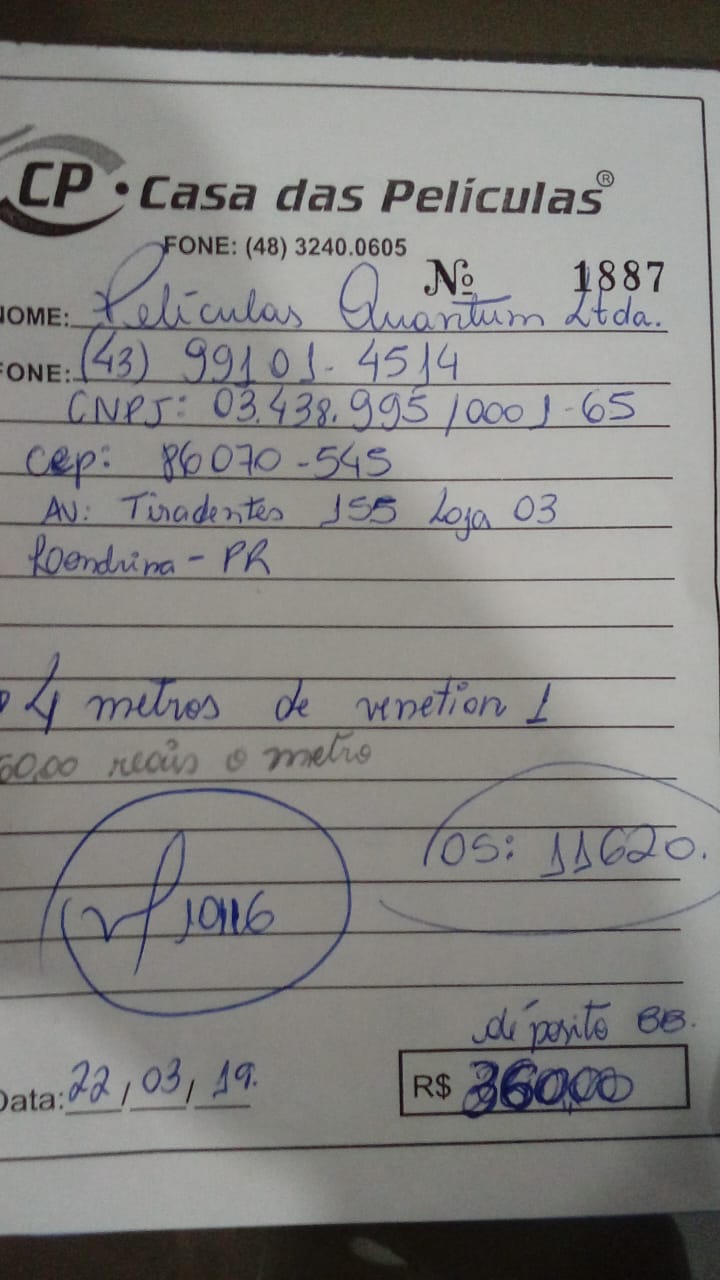 CP • Casa das Películas®
FONE: (48) 3240.0605
Nº 1887
NOME: Películas Quantum Ltda.
FONE: (43) 99101-4514
CNPJ: 03.438.995/0001-65
Cep: 86070-545
AV: Tiradentes 155 Loja 03
Londrina - PR
4 metros de venetion 1
60,00 reais o metro
OS: 11620.
10116
déposito BB.
Data: 22/03/19.
R$ 360,00